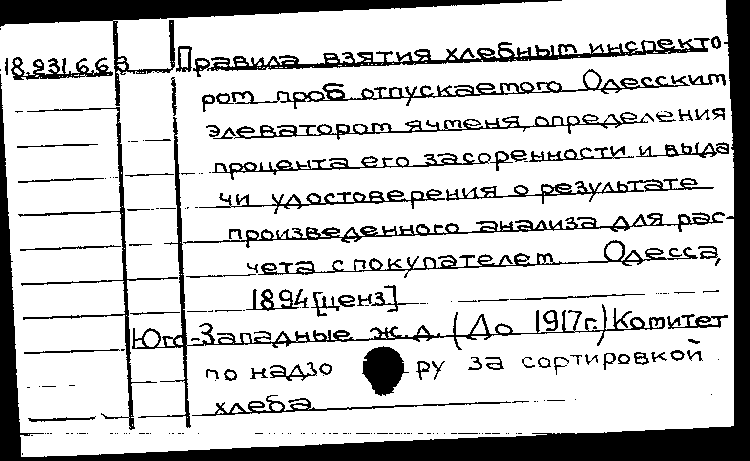 18.231.6.63 Правила взятия хлебным инспекто-
ром проб отпускаемого Одесским
элеватором ячменя, определения
процента его засоренности и выда-
чи удостоверения о результате
произведенного анализа для рас-
чета с покупателем. Одесса,
1894 [ценз]
Юго-Западные ж.д. (До 1917г.) Комитет
по надзору за сортировкой
хлеба